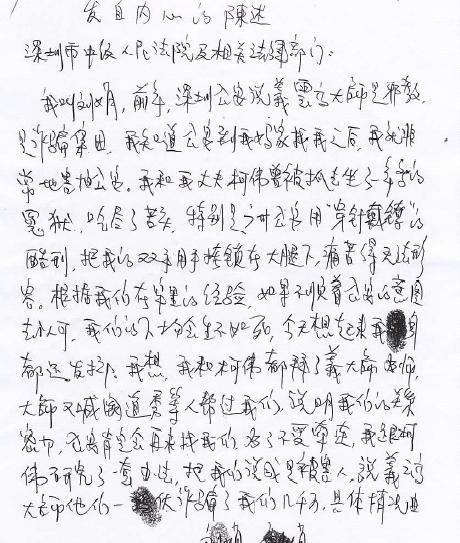 发自内心的陳述
深圳市中级人民法院及相关法律部门：
我叫刘娟，前年，深圳公安说義雲高大師是邪教，
是诈骗集团，我知道公安到我妈家找我之后，我就非
常地害怕公安。我和我丈夫柯偉曾被抓去坐了一年多的
冤狱，吃尽了苦头，特别是公安用"穿针戴镣"的
酷刑，把我的双手用手铐锁在大腿下，痛苦得无法形
容。根据我们在牢里的经验，如果不顺着公安的意图
去办
，我们的下场会生不如死，今天想起来我
都还发抖。我想，我和柯偉都拜了義大師为师，
大師又喊
等人帮过我们，说明我们的关系
密切，公安肯定会再来找我们，为了不受牵连，我跟柯
偉研究了一套办法，把我们说成是被害人，说義雲高
大師他们一
伙诈骗了我们几千万，具体情况